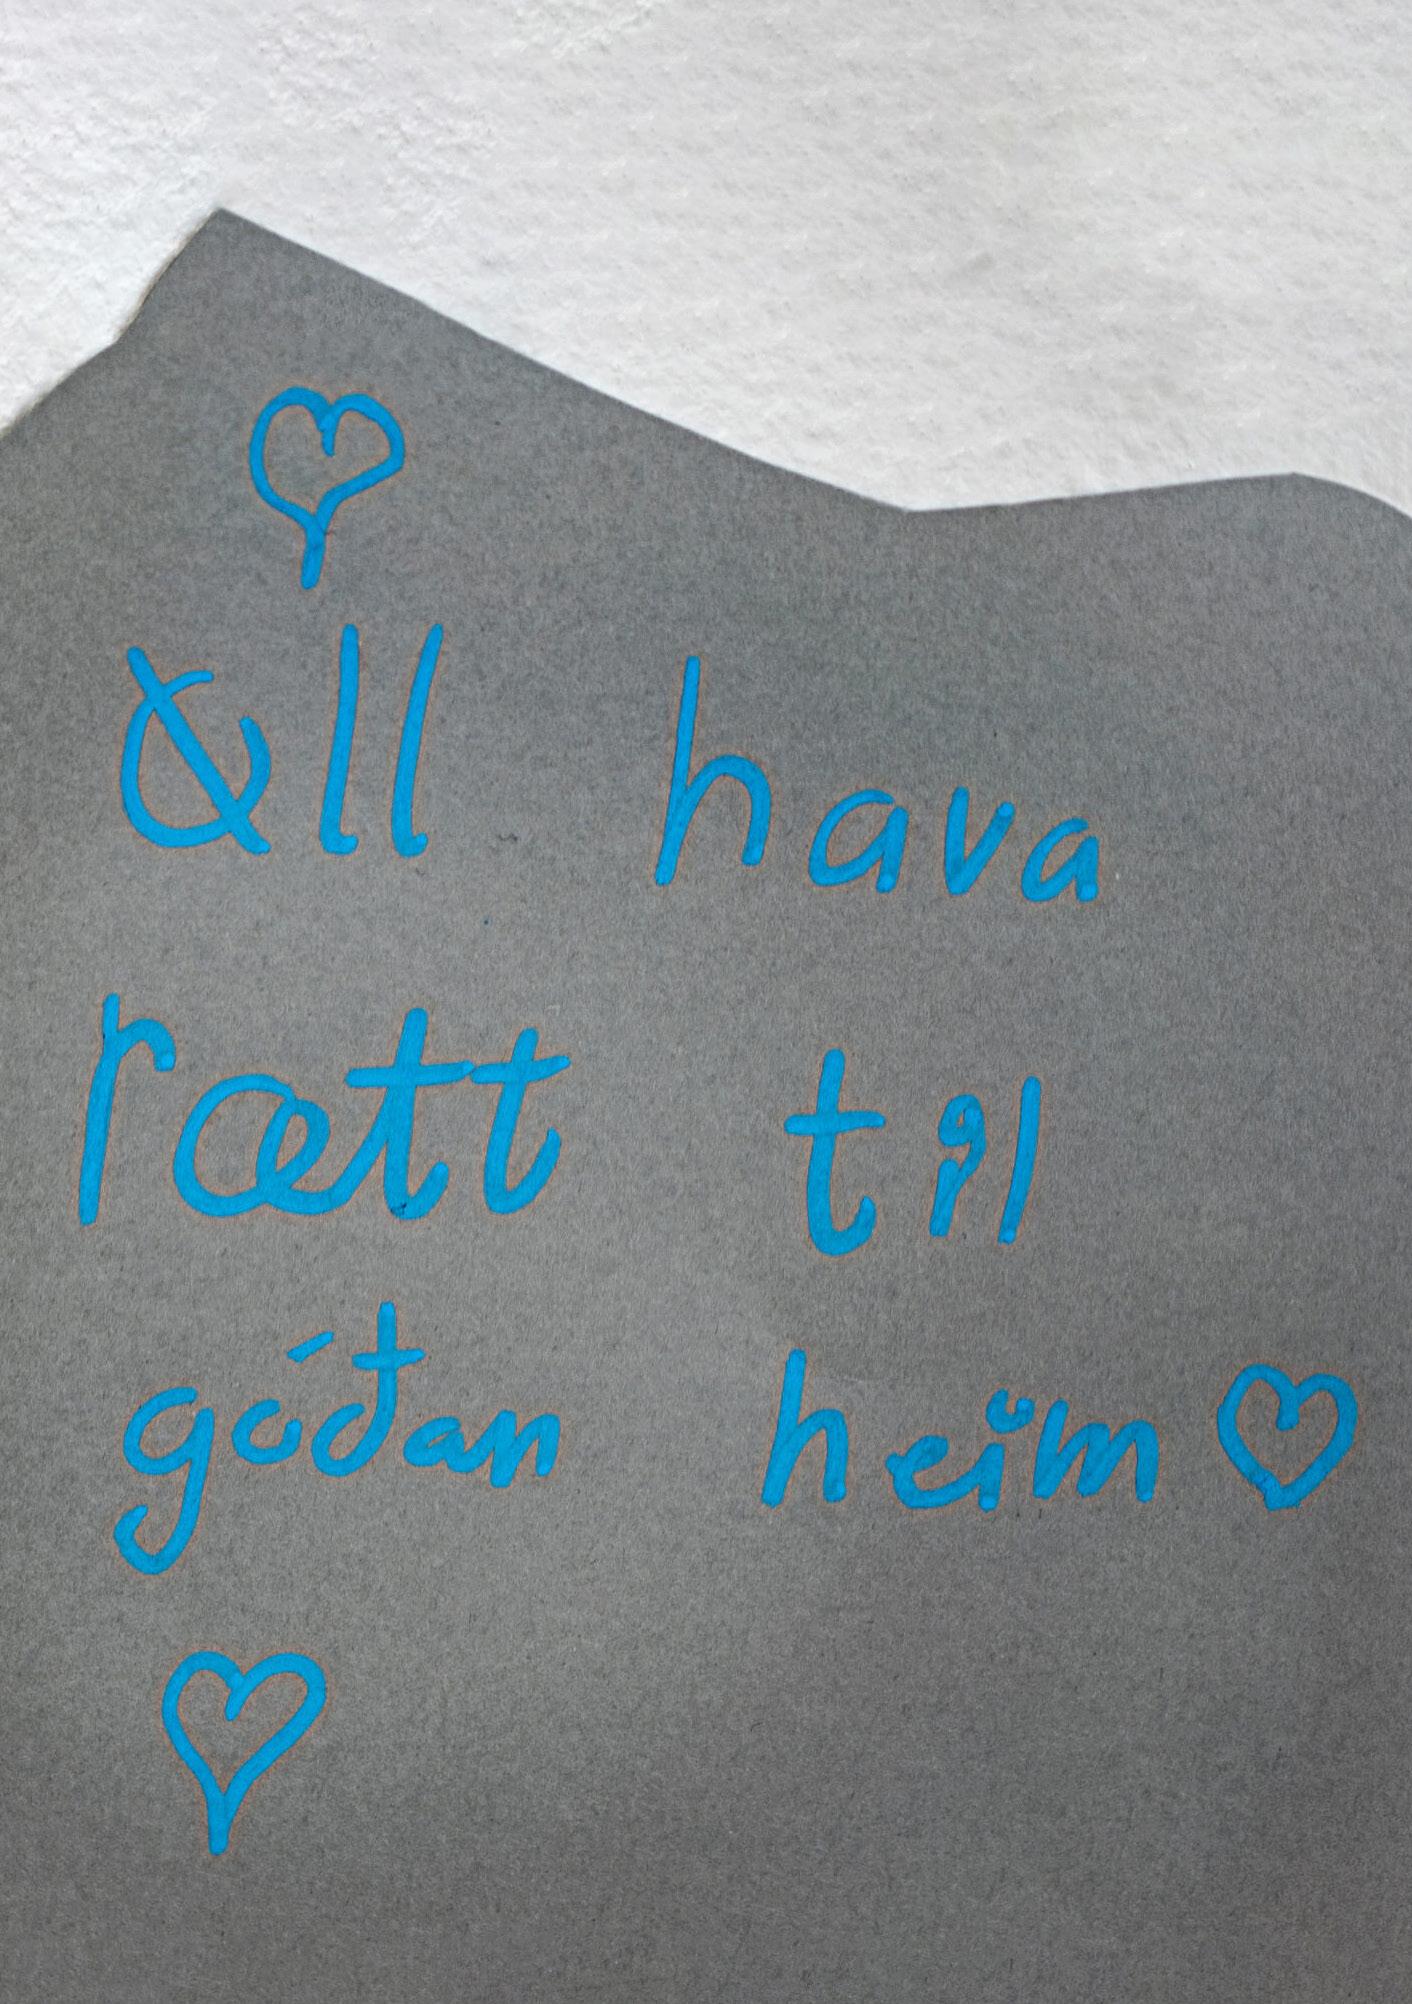 Øll hava
rætt til
góðan heim